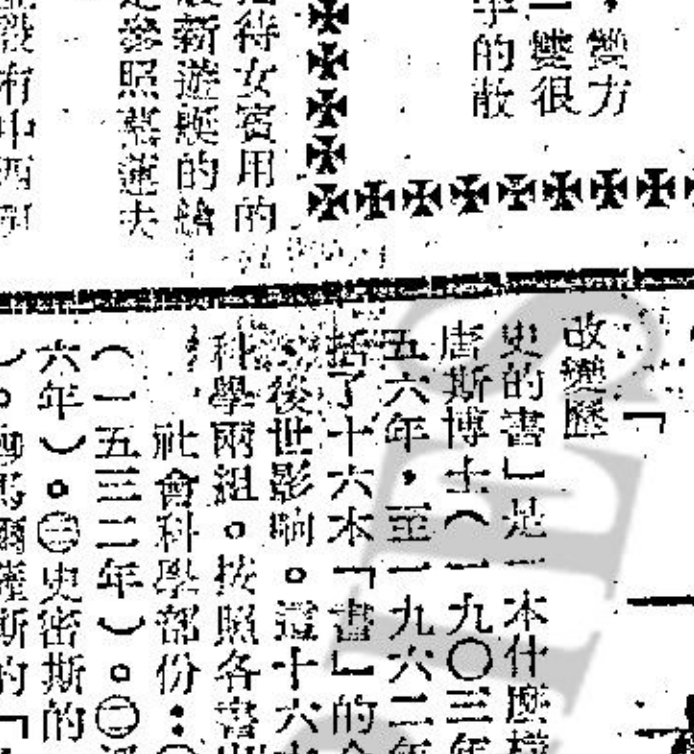 變力
一變很
的蔽
待女賓用的
新遊艇的
參照慕蓮夫
設有中西
改變歷
「史的書」是一本什麼樣
唐斯博士(一九〇三年
五六年,至一九六二年
括了十六本「書」的
後世影响。這十六本
科學兩組。按照各書出
社會科學部份:
(一五三二年)。㊁
六年)。㊂史密斯的
)。馬爾薩斯的「